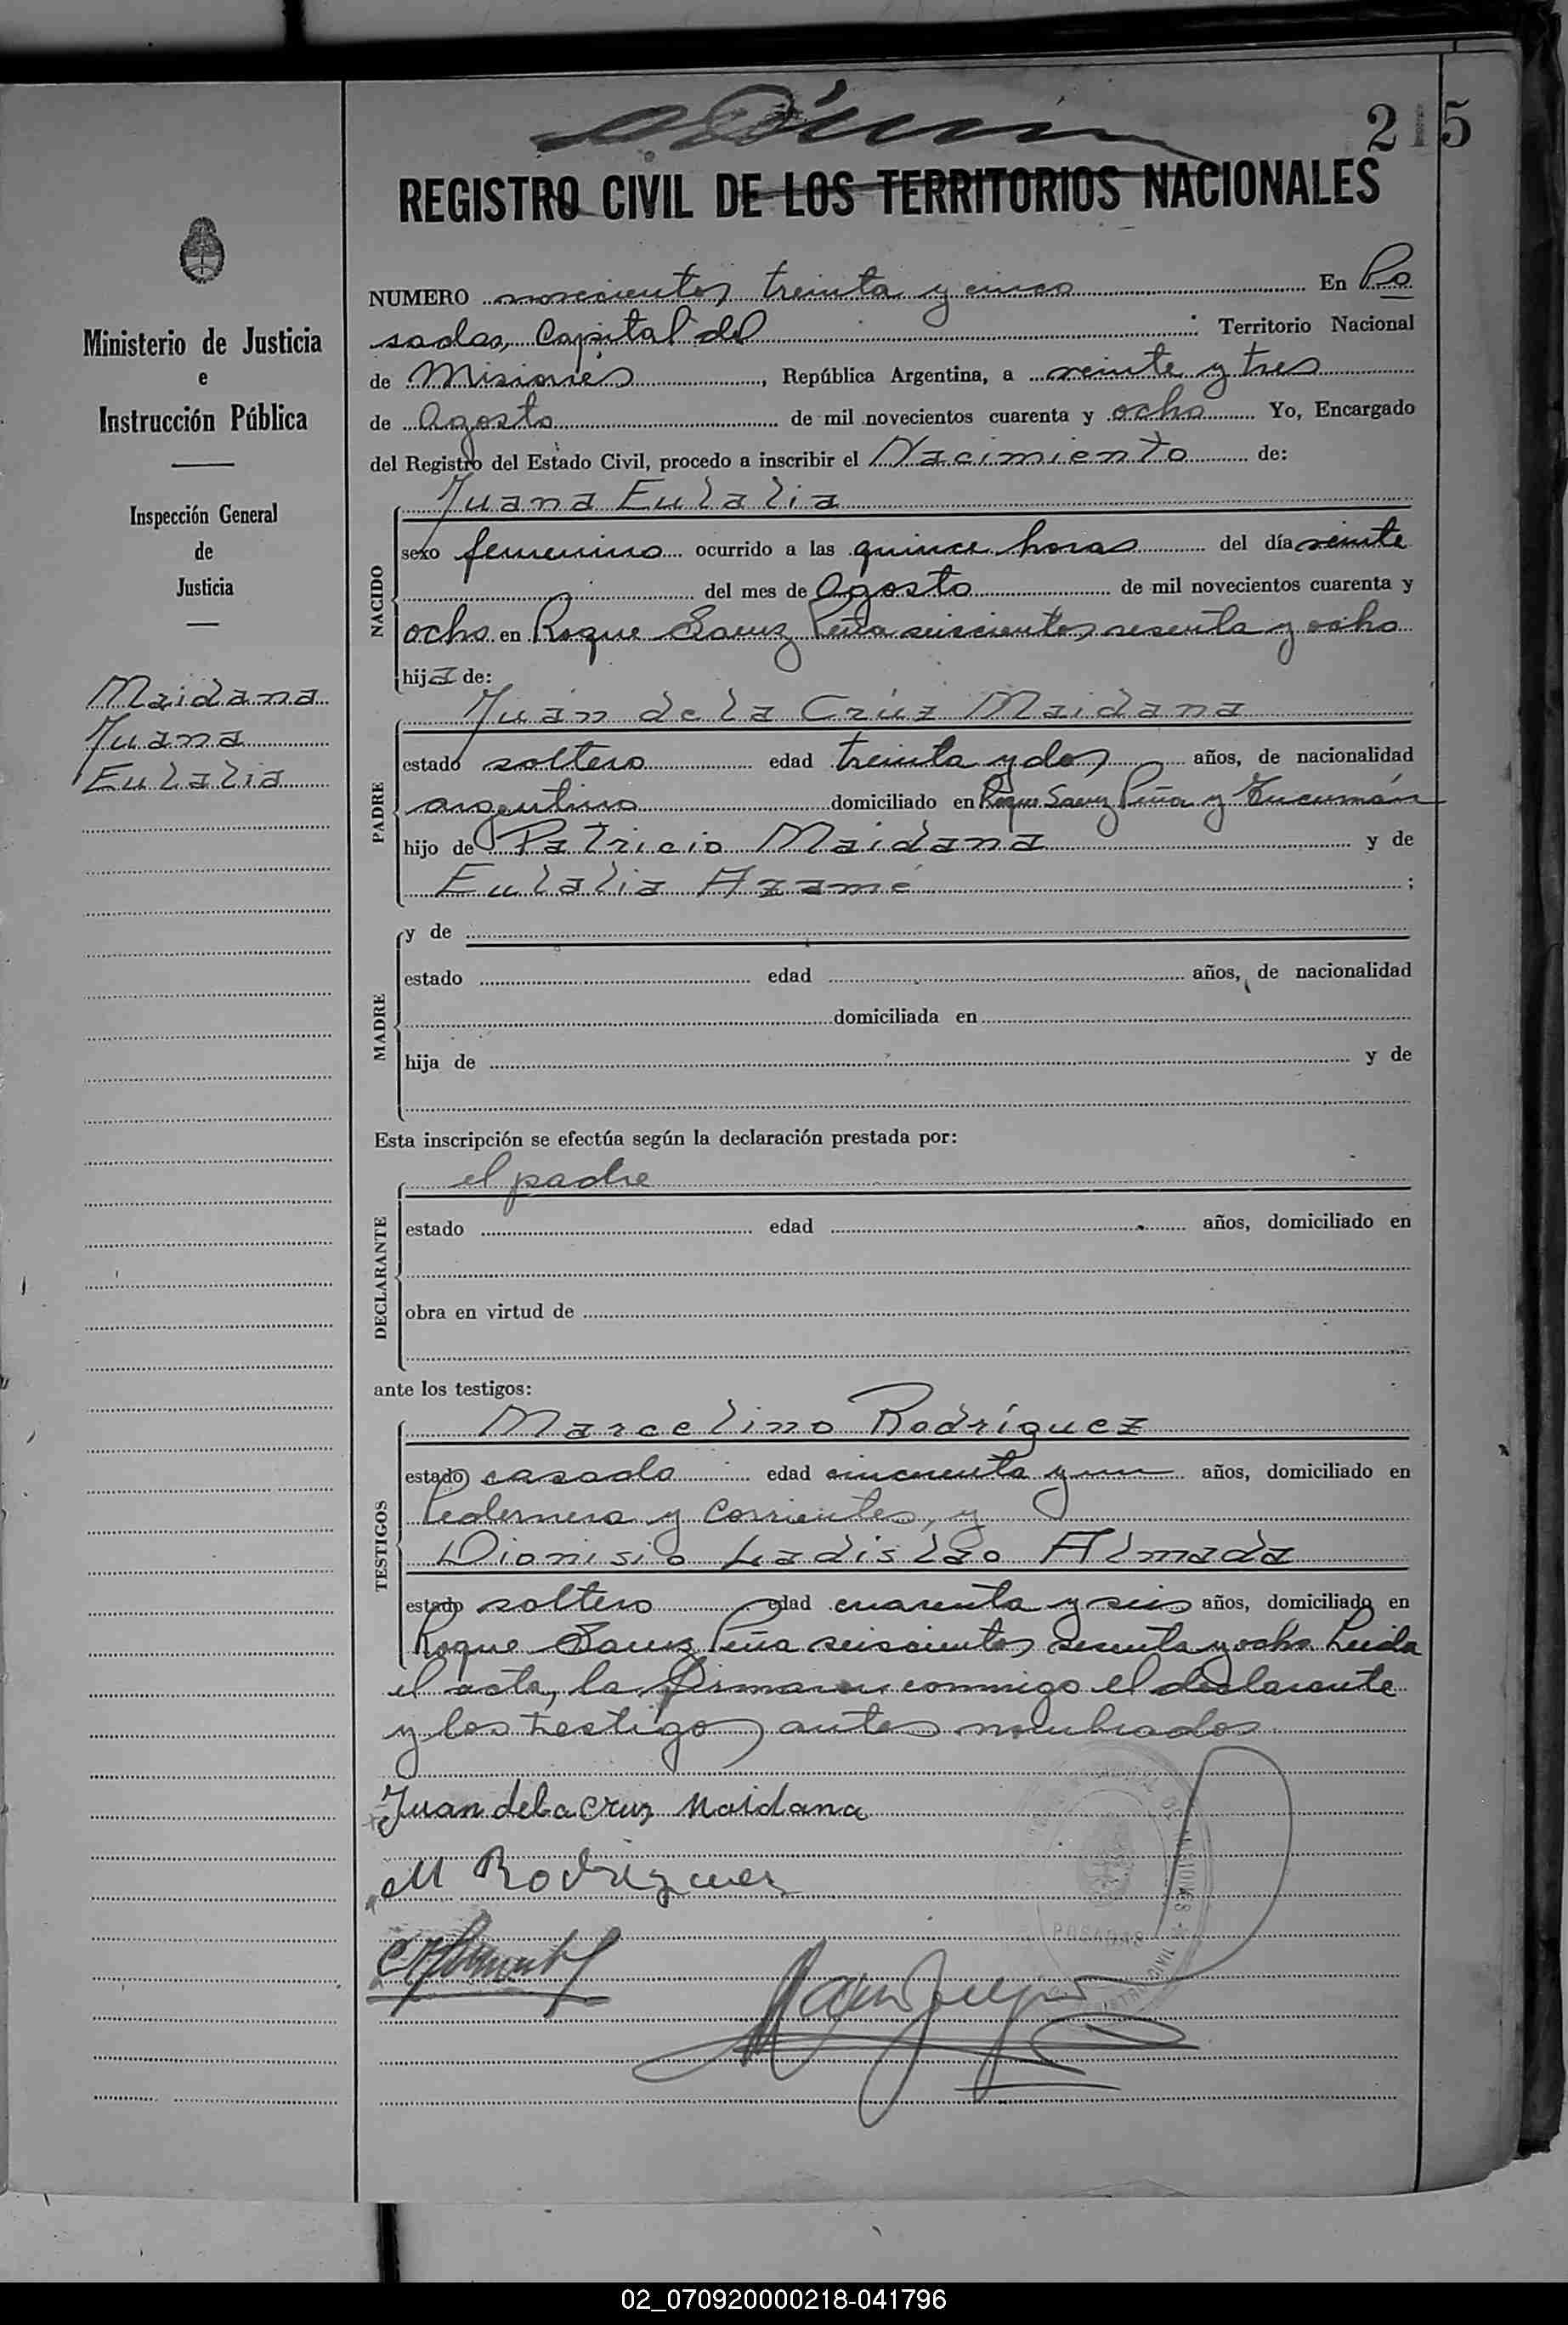 215
REGISTRO CIVIL DE LOS TERRITORIOS NACIONALES
Ministerio de Justicia
e
Instrucción Pública
Inspección General
de
Justicia
Maidana
Juana
Eulalia
NUMERO novecientos treinta y cinco En Po
sadas, Capital del Territorio Nacional
de Misiones, República Argentina, a veinte y tres
de Agosto de mil novecientos cuarenta y ocho Yo, Encargado
del Registro del Estado Civil, procedo a inscribir el Nacimiento de:
NACIDO
Juana Eulalia
sexo femenino ocurrido a las quince horas del día veinte
del mes de Agosto de mil novecientos cuarenta y
ocho en Roque Saenz Peña seiscientos sesenta y ocho
hija de:
PADRE
Juan de la Crúz Maidana
estado soltero edad treinta y dos años, de nacionalidad
argentino domiciliado en Roque Saenz Peña y Tucumán
hijo de Patricio Maidana y de
Eulalia Azamé ;
MADRE
y de
estado edad años, de nacionalidad
domiciliada en
hija de y de
Esta inscripción se efectúa según la declaración prestada por:
DECLARANTE
el padre
estado edad años, domiciliado en
obra en virtud de
ante los testigos:
TESTIGOS
Marcelino Rodríguez
estado casado edad cincuenta y un años, domiciliado en
Pedernera y Corrientes, y
Dionisio Ladislao Almada
estado soltero edad cuarenta y seis años, domiciliado en
Roque Saenz Peña seiscientos sesenta y ocho Leida
el acta, la firmaron conmigo el declarante
y los testigos antes nombrados
Juan de la Cruz Maidana
M Rodriguez
POSADAS
02_070920000218-041796